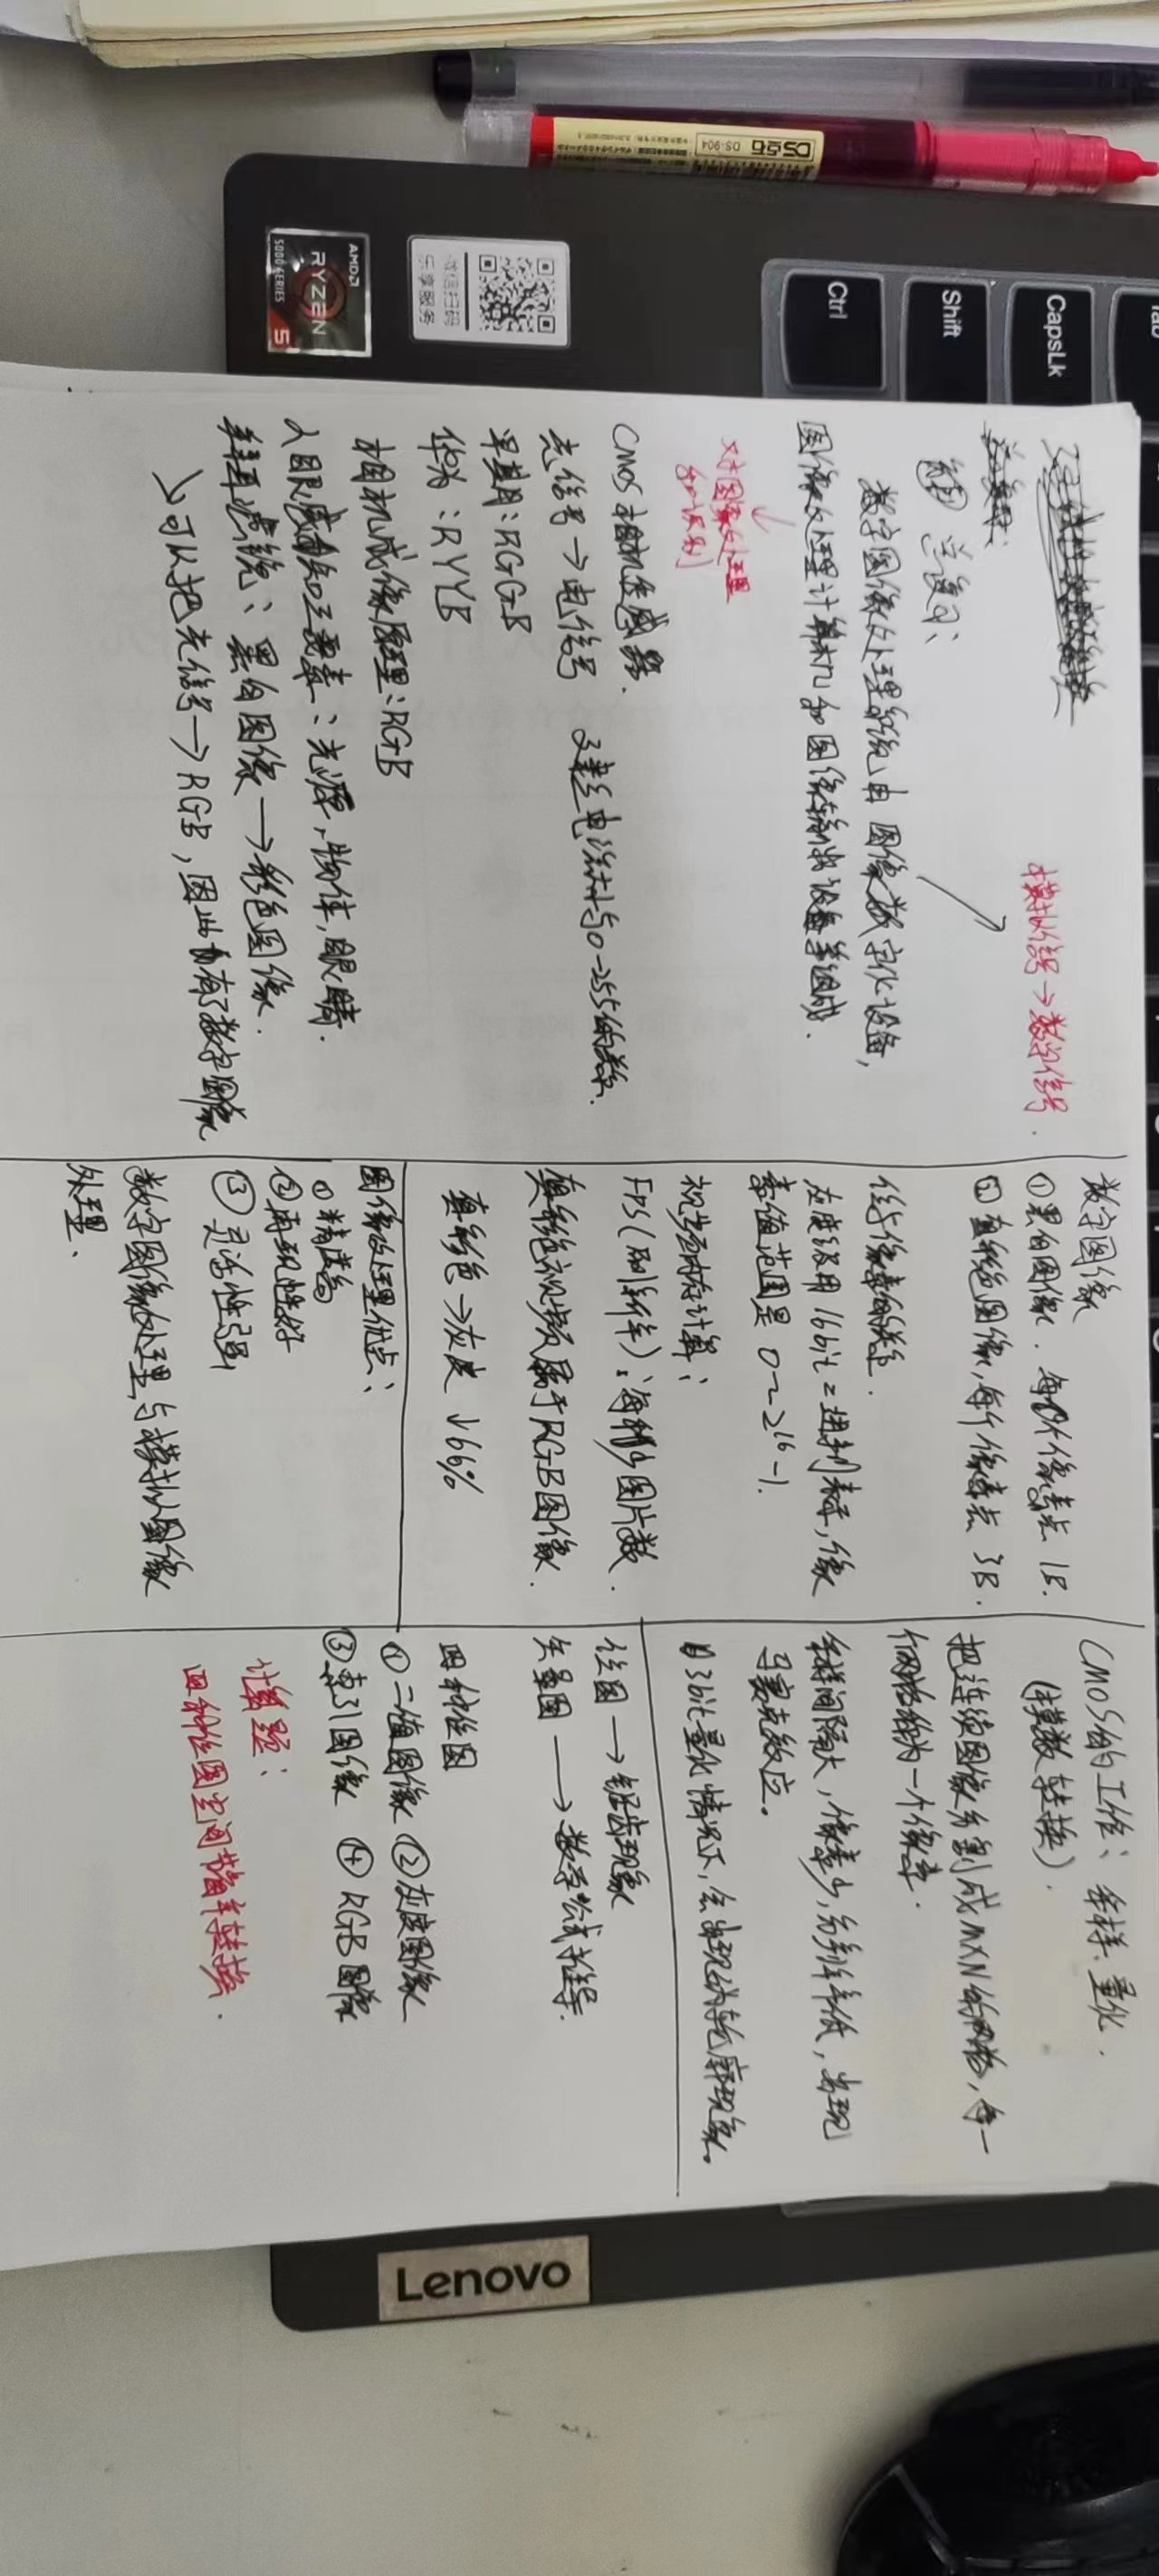 Tab
CapsLk
Shift
Ctrl
DS点石
DS-904
微信扫码
乐享服务
AMD
RYZEN
5000 SERIES 5
Lenovo
模拟信号→数字信号.
总复习:
数字图像处理系统由图像数字化设备,
图像处理计算机和图像输出设备等组成.
对图像处理
和识别
CMOS相机传感器.
光信号→电信号 建立电流大小与0-255的关系.
早期:RGGB
华为:RYYB
相机成像原理:RGB
人眼感知三要素:光源,物体,眼睛.
拜耳滤镜:黑白图像→彩色图像.
↘可以把光信号→RGB,因此有了数字图像
数字图像
①黑白图像.每个像素点 1B.
②真彩色图像,每个像素点 3B.
位与像素的关系.
灰度级用16bit二进制表示,像
素值范围是 0~2¹⁶-1.
视频内存计算:
FPS(刷新率):每秒图片数.
真彩色视频属于RGB图像.
真彩色→灰度 ↓66%
图像处理优点:
①精度高
②再现性好
③灵活性强
数字图像处理与模拟图像
处理.
CMOS的工作:采样.量化.
(模数转换).
把连续图像分割成M×N的网格,每一
个网格称为一个像素.
采样间隔大,像素少,分辨率低,出现
马赛克效应。
3bit量化情况下,会出现伪轮廓现象。
位图→锯齿现象
矢量图→数学公式推导.
四种位图
①二值图像 ②灰度图像
③索引图像 ④RGB图像
计算题:
四种位图空间节省率转换.